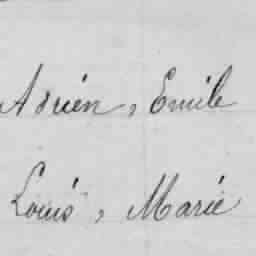 Adrien, Emile
Louis, Marie